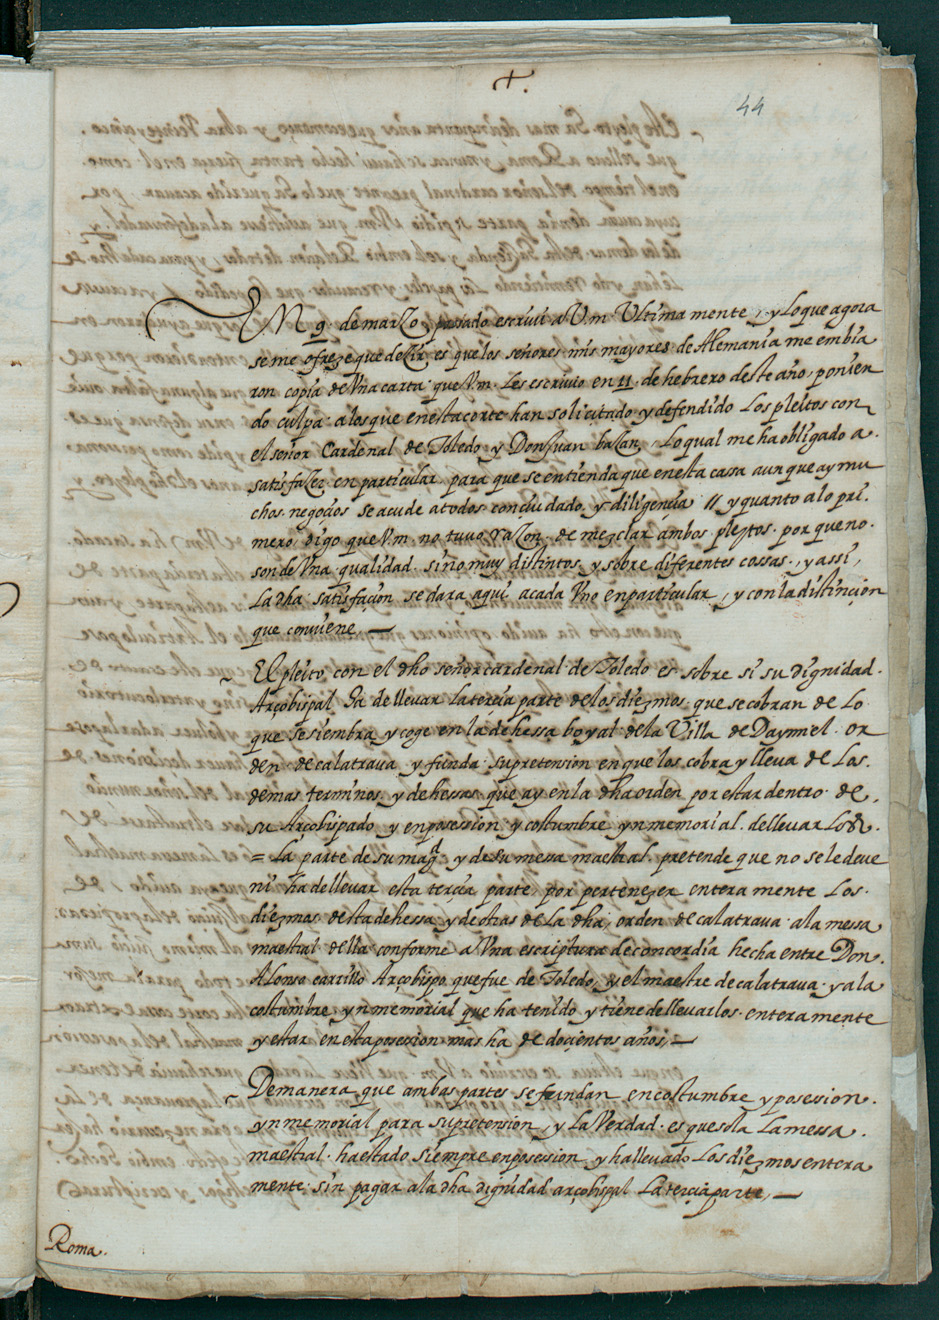 +.
44
En 9. de marzo passado escrivi a Vm Ultimamente, y lo que agora
se me ofreze que dezir es que los señores mis mayores de Alemania me embia
ron copia de Una carta que Vm. les escrivio en 11. de hebrero deste año ponien
do culpa a los que en esta corte han solicitado y defendido Los pleitos con
el señor Cardenal de Toledo y Don Juan bazan, Lo qual me ha obligado a.
satisfazer en particular para que se entienda que en esta cassa aunque ay mu
chos negoçios se acude a todos con cuidado y diligençia // y quanto a lo pri.
mero digo que Vm. no tuvo razon de mezclar ambos pleytos por que no.
son de Una qualidad sino muy distintos y sobre diferentes cossas, y assi,
La dha satisfaçion se dara aqui a cada Uno en particular, y con la distinçion
que conviene —
~ El pleito con el dho señor cardenal de Toledo es sobre si su dignidad.
Arçobispal Ha de llevar la terçia parte de los diezmos que se cobran de Lo
que se siembra y coge en la dehessa boyal de la Villa de Daymiel. or
den de calatrava y funda su pretension en que los cobra y lleva de Los.
demas terminos y dehessas que ay en la dha orden por estar dentro de,
su Arçobispado y en posession y costumbre ynmemorial. de llevarlos.
= La parte de su magd y de su messa maestral. pretende que no se le deve
ni ha de llevar esta terçia parte por pertenezer enteramente Los.
diezmos desta dehessa y de otras de La dha, orden de calatrava a la messa
maestral della conforme a Una escriptura de concordia hecha entre Don.
Alonso carrillo Arçobispo que fue de Toledo, y el maestre de calatrava y a la
costumbre ynmemorial que ha tenido y tiene de llevarlos enteramente
y estar en esta posession mas ha de doçientos años, —
~ De manera que ambas partes se fundan en costumbre y posession.
ynmemorial para su pretension, y La Verdad es que sola La messa.
maestral. ha estado siempre en posession y ha llevado Los diezmos entera
mente sin pagar a la dha dignidad arçobispal La terçia parte, —
Roma.